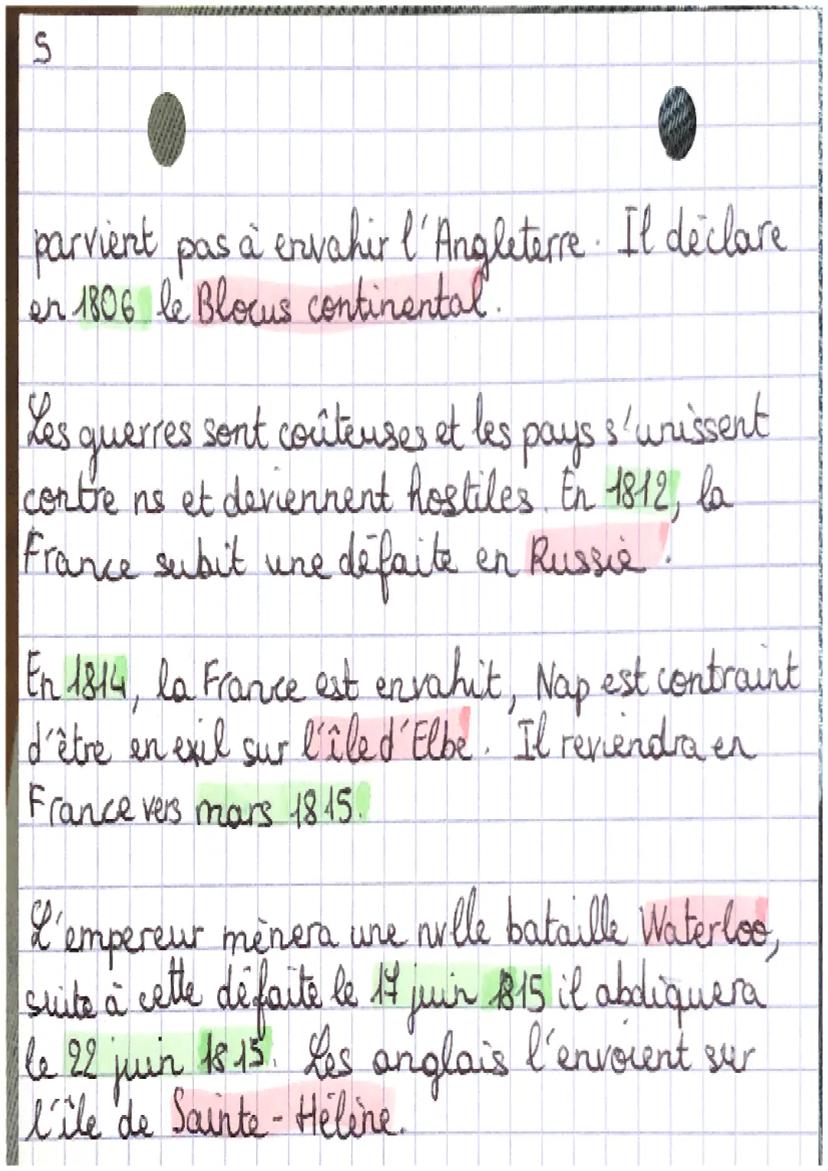 5
parvient pas à envahir l'Angleterre. Il déclare
en 1806 le Blocus continental.
Les guerres sont coûteuses et les pays s'unissent
contre ns et deviennent hostiles. En 1812, la
France subit une défaite en Russie.
En 1814, la France est envahit, Nap est contraint
d'être en exil sur l'île d'Elbe. Il reviendra en
France vers mars 1815.
L'empereur mènera une nvlle bataille Waterloo,
suite à cette défaite le 17 juin 1815 il abdiquera
le 22 juin 1815. Les anglais l'envoient sur
l'île de Sainte-Hélène.